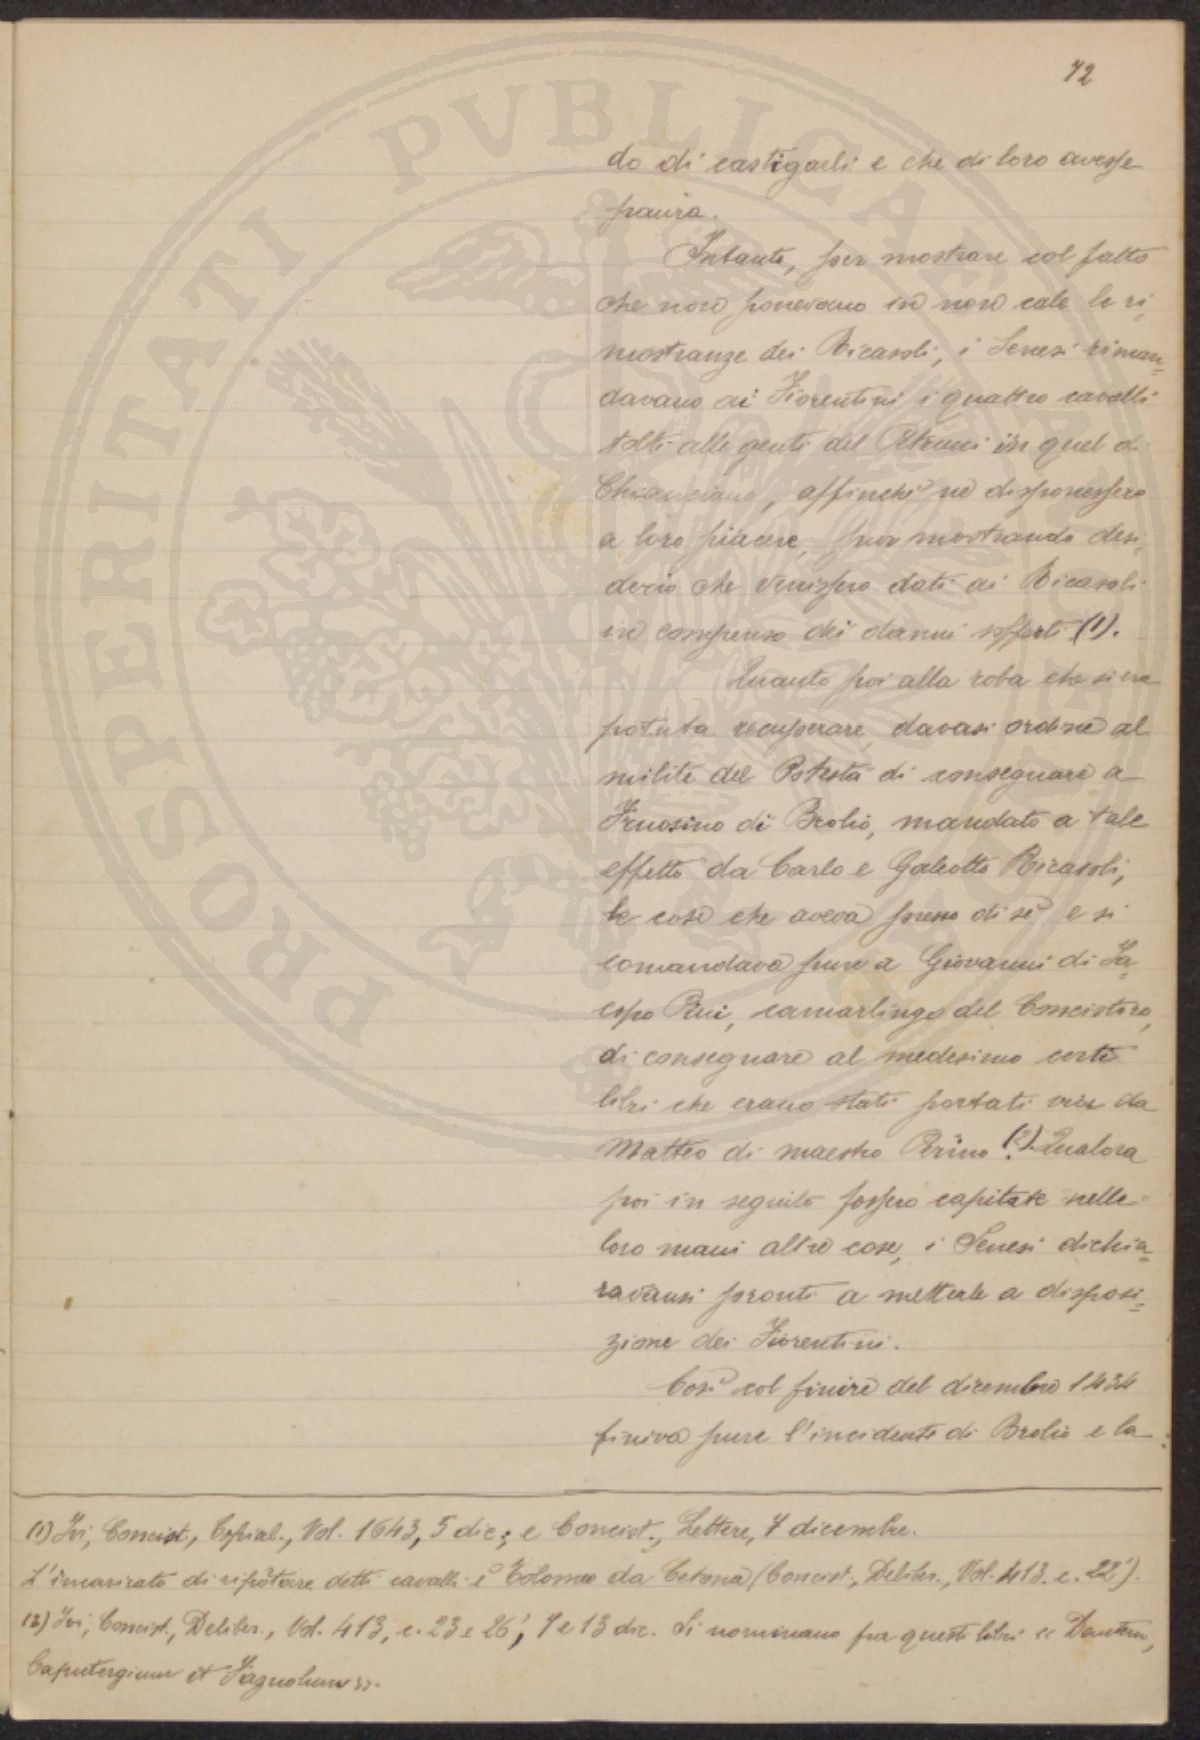 72
do di castigarli e che di loro avesse
paura.
Intanto, per mostrare col fatto
che non ponevano in non cale le ri-
mostranze dei Ricasoli, i Senesi riman-
davano ai Fiorentini i quattro cavalli
tolti alle genti del Petrucci in quel di
Chianciano, affinché ne disponessero
a loro piacere, pur mostrando desi-
derio che venissero dati ai Ricasoli
in compenso dei danni sofferti (1).
Quanto poi alla roba che si era
potuta recuperare, davasi ordine al
milite del Potestà di consegnare a
Fruosino di Brolio, mandato a tale
effetto da Carlo e Galeotto Ricasoli,
le cose che aveva presso di sé e si
comandava pure a Giovanni di Ja-
copo Pini, camarlingo del Concistoro,
di consegnare al medesimo certi
libri che erano stati portati via da
Matteo di maestro Perino (2). Qualora
poi in seguito fossero capitate nelle
loro mani altre cose, i Senesi dichia-
ravansi pronti a metterle a disposi-
zione dei Fiorentini.
Così col finire del dicembre 1434
finiva pure l'incidente di Brolio e la
(1) Ivi, Concist., Copial., Vol. 1643, 5 dic.; e Concist., Lettere, 7 dicembre.
L'incaricato di riportare detti cavalli è Tolomeo da Cetona (Concist., Deliber., Vol. 413. c. 22').
(2) Ivi, Concist., Deliber., Vol. 413, c. 23 e 26', 7 e 13 dic. Si nominano fra questi libri «Dantem,
et
PROSPERITATI PVBLICAE